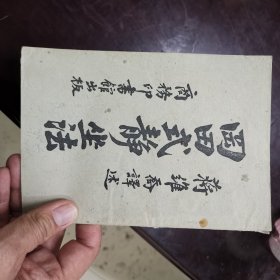 蒋維喬譯述
岡田式靜坐法
商務印書館出版